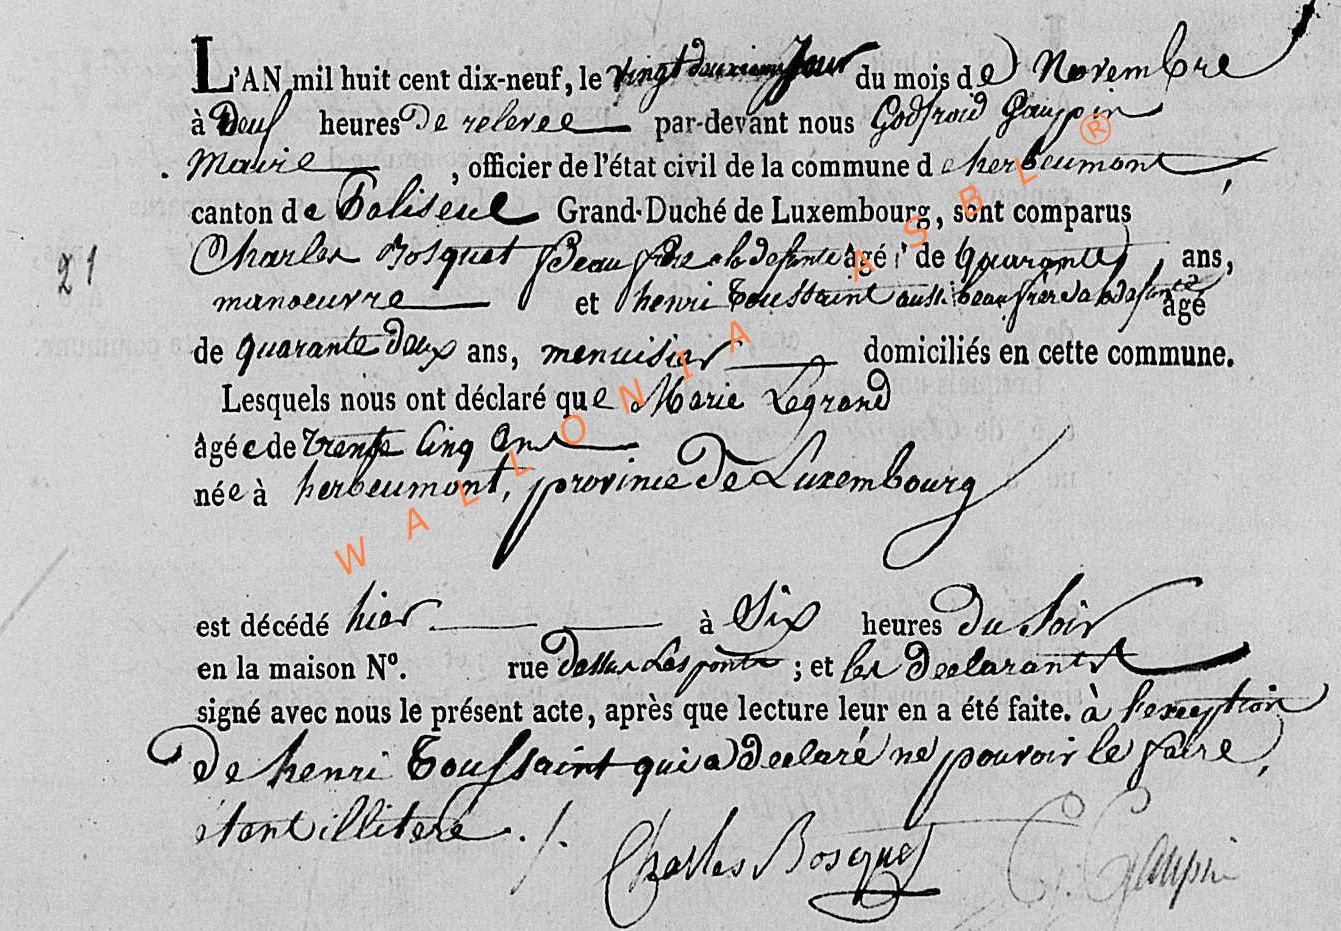 L'AN mil huit cent dix-neuf, le vingt deuxieme Jour du mois de Novembre
à Deux heures De relevee par-devant nous Godfroid Gauppin
Maire , officier de l'état civil de la commune de herbeumont,
canton de Paliseul Grand-Duché de Luxembourg, sont comparus
21
Charles Bosquet Beau frère a la defunte âgé de quarante ans,
manoeuvre et henri Toussaint aussi beau frère a la defunte âgé
de quarante deux ans, menuisier domiciliés en cette commune.
Lesquels nous ont déclaré que Marie Legrand
âgée de trente Cinq Ans
née à herbeumont, province De Luxembourg
est décédé hier à Six heures Du Soir
en la maison N°. rue dessus Les ponts ; et les Declarants
signé avec nous le présent acte, après que lecture leur en a été faite. à l'exception
De henri Toussaint qui a Declaré ne pouvoir le faire,
étant illiteré ./.
Charles Bosquet G. Gauppin
WALLONIA ASBL ®